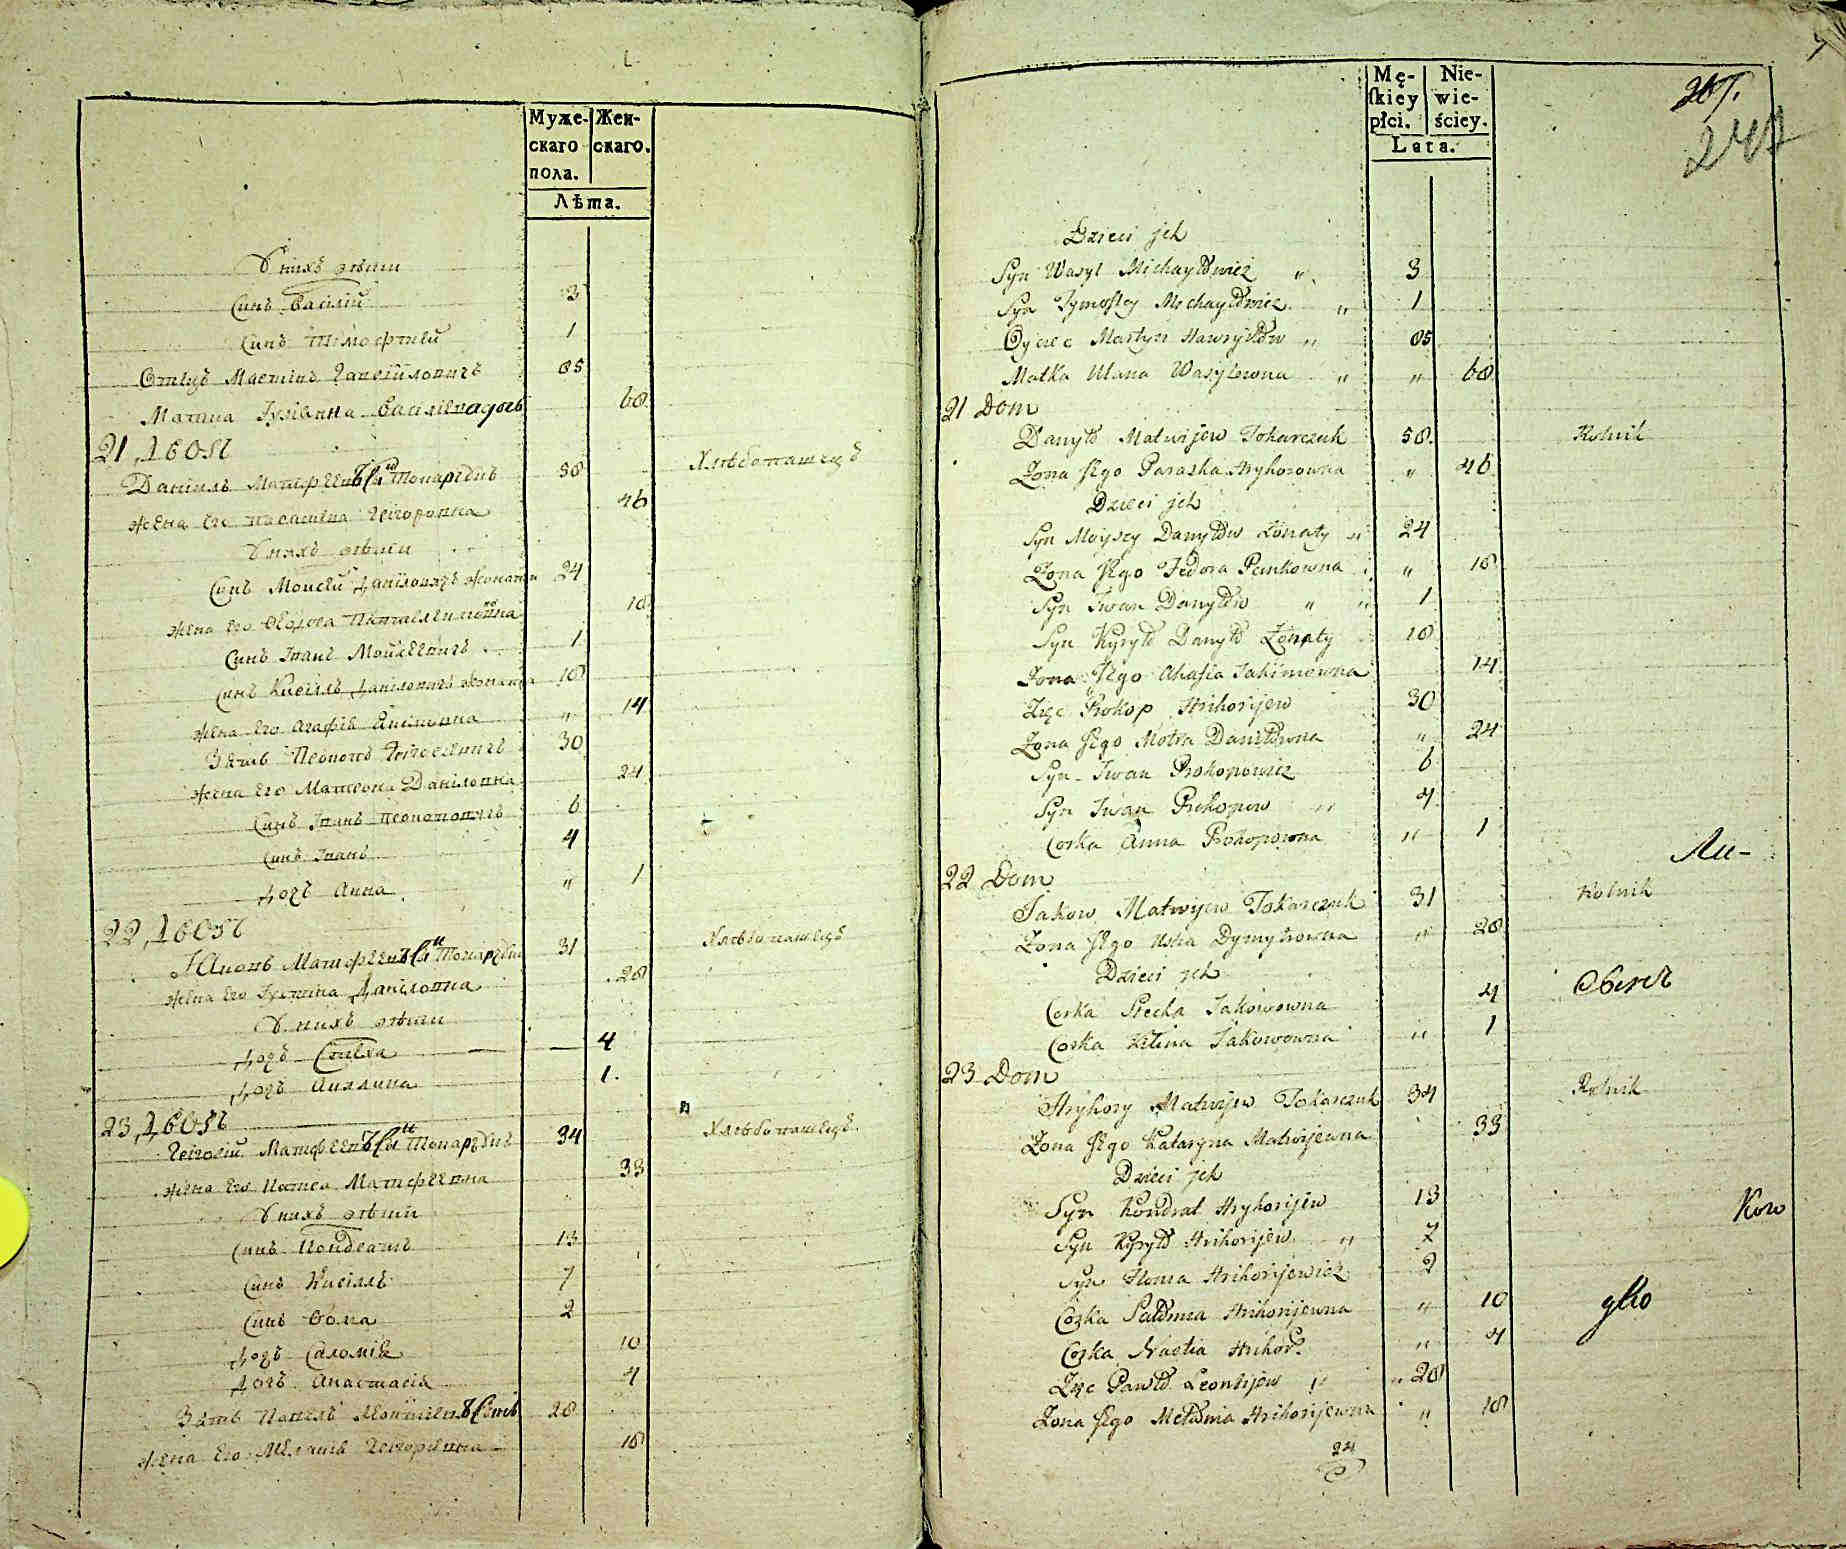 Муже-
скаго
пола.
Жен-
скаго.
Лѣта.
У нихъ дѣти
Синъ Василій 3
Синъ Тимофтей 1
Отецъ Мартинъ Гавріиловичъ 85
Матка Іуліанна Василіевна дочь 68
21 Домъ
Даніилъ Матфѣевъ Сынъ Токарчукъ 58 Хлѣбопашецъ
Жена Его Параскева Григоровна 46
У нихъ дѣти
Синъ Моисей Даніловичъ жонатій 24
Жена Его Феодора Пантелеимонна 18
Синъ Іванъ Мойсѣевичъ 1
Синъ Кирілъ Даніловичъ жонатій 18
Жена Его Агафія Якимовна " 14
Зять Прокопъ Григорѣевичъ 30
Жена Его Матрона Даніловна 24
Синъ Іванъ Прокоповичъ 6
Синъ Іванъ 4
Дочь Анна " 1
22 Домъ
Іаковъ Матфѣевъ Сынъ Токарчукъ 31 Хлѣбопашецъ
Жена Его Іустина Даніловна 28
У нихъ дѣти
Дочь Стеха 4
Дочь Акилина 1.
23 Домъ
Григорій Матфѣевъ Сынъ Токарчукъ 34 Хлѣбопашецъ.
Жена Его Матфѣевна 33
У нихъ дѣти
Синъ Кондратъ 13
Синъ Кирілъ 7
Синъ Фома 2
Дочь Саломія 10
Дочь Анастасія 4
Зять Павелъ Леонтіевъ Синъ 28
Жена Его Меланія Григорѣвна 18
Mę-
ſkiey
płci.
Nie-
wie-
ściey.
Lata.
Dzieci jch
Syn Wasyl Michayłowicz " 3
Syn Tymofiey Michayłowicz " 1
Oyciec Martyn Hawryłów " 85
Matka Ulana Wasylewna " " 68
21 Dom
Danyło Matwijew Tokarczuk 58. Rolnik
Żona Jego Paraska Hryhorowna " 46
Dzieci jch
Syn Moysey Danyłów Żonaty " 24
Żona Jego Fedora Pankowna " 18
Syn Jwan Danyłów " " 1
Syn Kyryło Danyło Żonaty 18
Żona Jego Ahafia Jakimowna 14
Zięć Prokop Hrihorijew 30
Żona Jego Motra Daniłowna " 24
Syn Jwan Prokopowicz 6
Syn Jwan Prokopow " 4
Corka Anna Prokopowna " 1
Ли-
22 Dom
Jakow Matwijew Tokarczuk 31 Rolnik
Żona Jego Ustia Dymytrowna " 28
Dzieci jch
Corka Stecha Jakowowna 4
Corka Kilina Jakowowna " 1
23 Dom
Hryhory Matwijew Tokarczuk 34 Rolnik
Żona Jego Kataryna Matwijewna 33
Dzieci jch
Syn Kondrat Hryhorijew 13
Syn Kyryło Hrihorijew " 7
Syn Homa Hrihorijewicz 2
Corka Sałomia Hrihorijewna " 10
Corka Nastia Hrihor: " 4
Zięć Pawło Leontijew " " 28
Żona Jego Mełania Hrihorijewna " 18
24